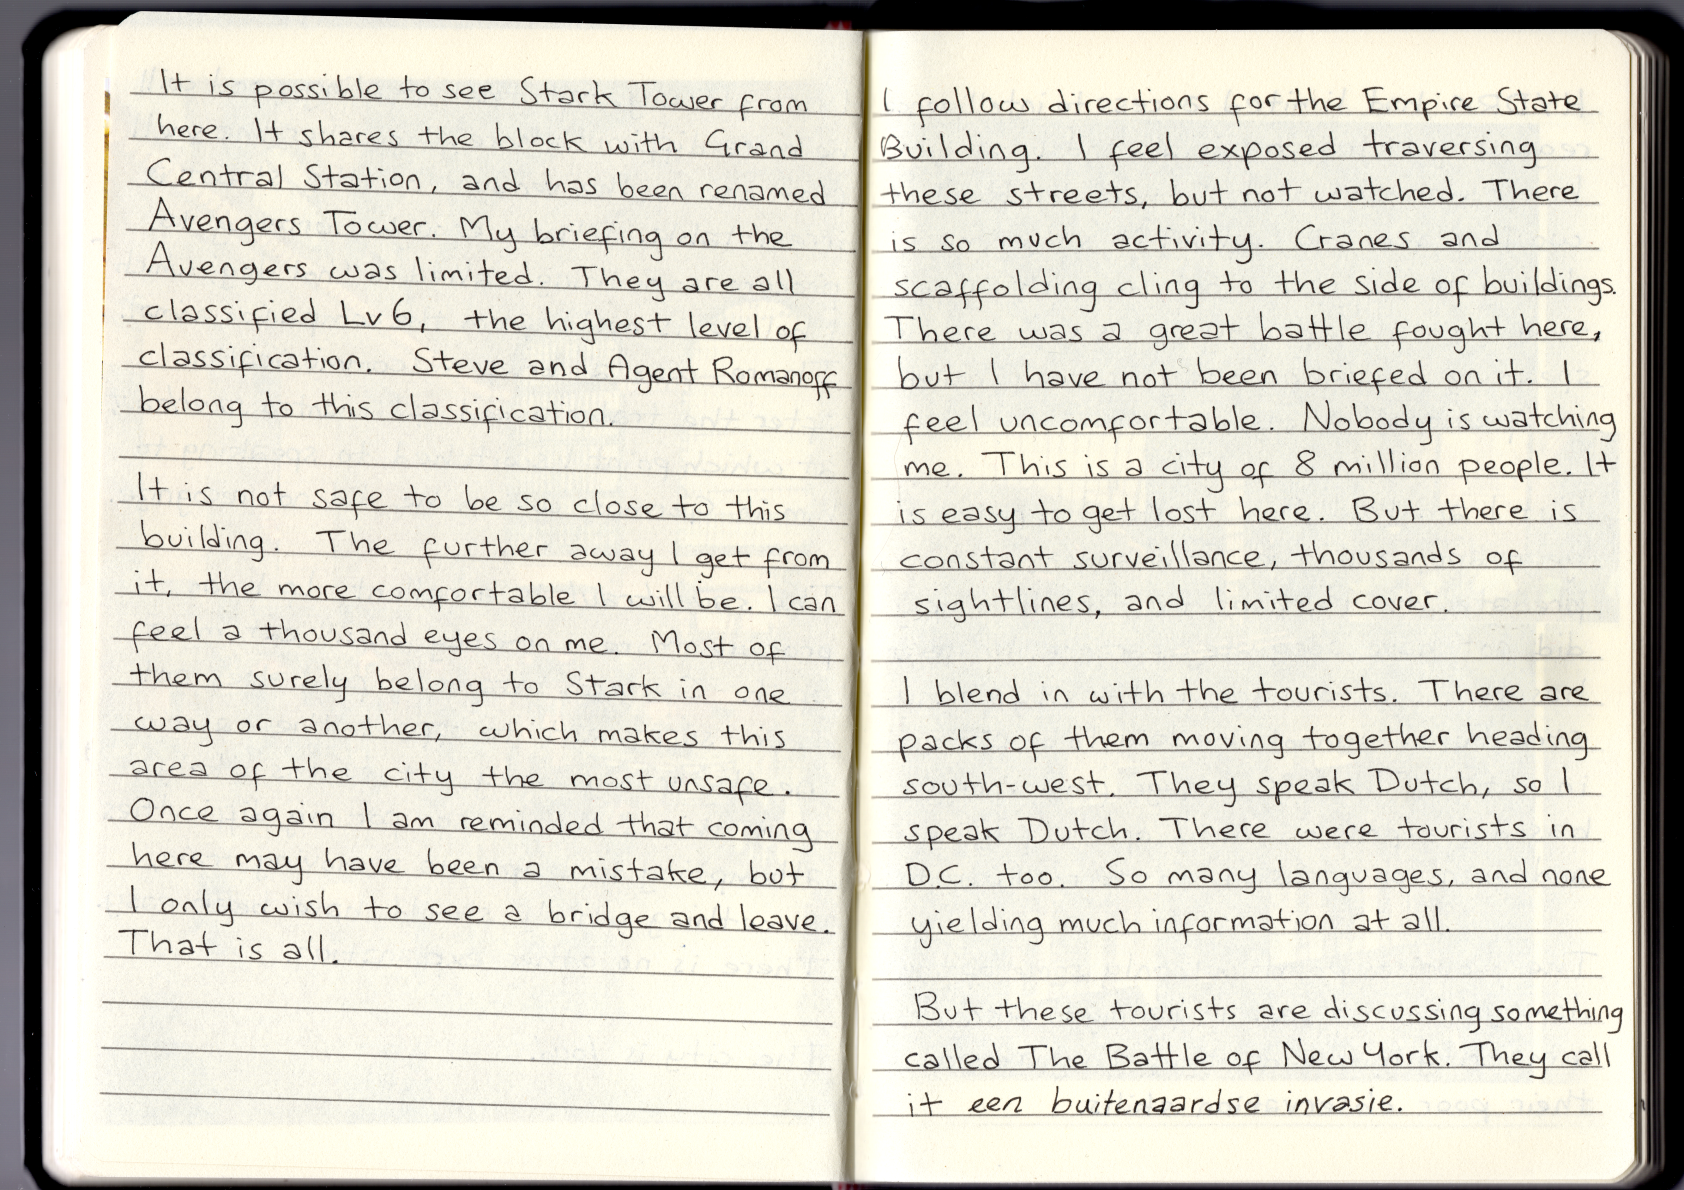 It is possible to see Stark Tower from
here. It shares the block with Grand
Central Station, and has been renamed
Avengers Tower. My briefing on the
Avengers was limited. They are all
classified Lv6, the highest level of
classification. Steve and Agent Romanoff
belong to this classification.
It is not safe to be so close to this
building. The further away I get from
it, the more comfortable I will be. I can
feel a thousand eyes on me. Most of
them surely belong to Stark in one
way or another, which makes this
area of the city the most unsafe.
Once again I am reminded that coming
here may have been a mistake, but
I only wish to see a bridge and leave.
That is all.
I follow directions for the Empire State
Building. I feel exposed traversing
these streets, but not watched. There
is so much activity. Cranes and
scaffolding cling to the side of buildings.
There was a great battle fought here,
but I have not been briefed on it. I
feel uncomfortable. Nobody is watching
me. This is a city of 8 million people. It
is easy to get lost here. But there is
constant surveillance, thousands of
sightlines, and limited cover.
I blend in with the tourists. There are
packs of them moving together heading
south-west. They speak Dutch, so I
speak Dutch. There were tourists in
D.C. too. So many languages, and none
yielding much information at all.
But these tourists are discussing something
called The Battle of New York. They call
it een buitenaardse invasie.